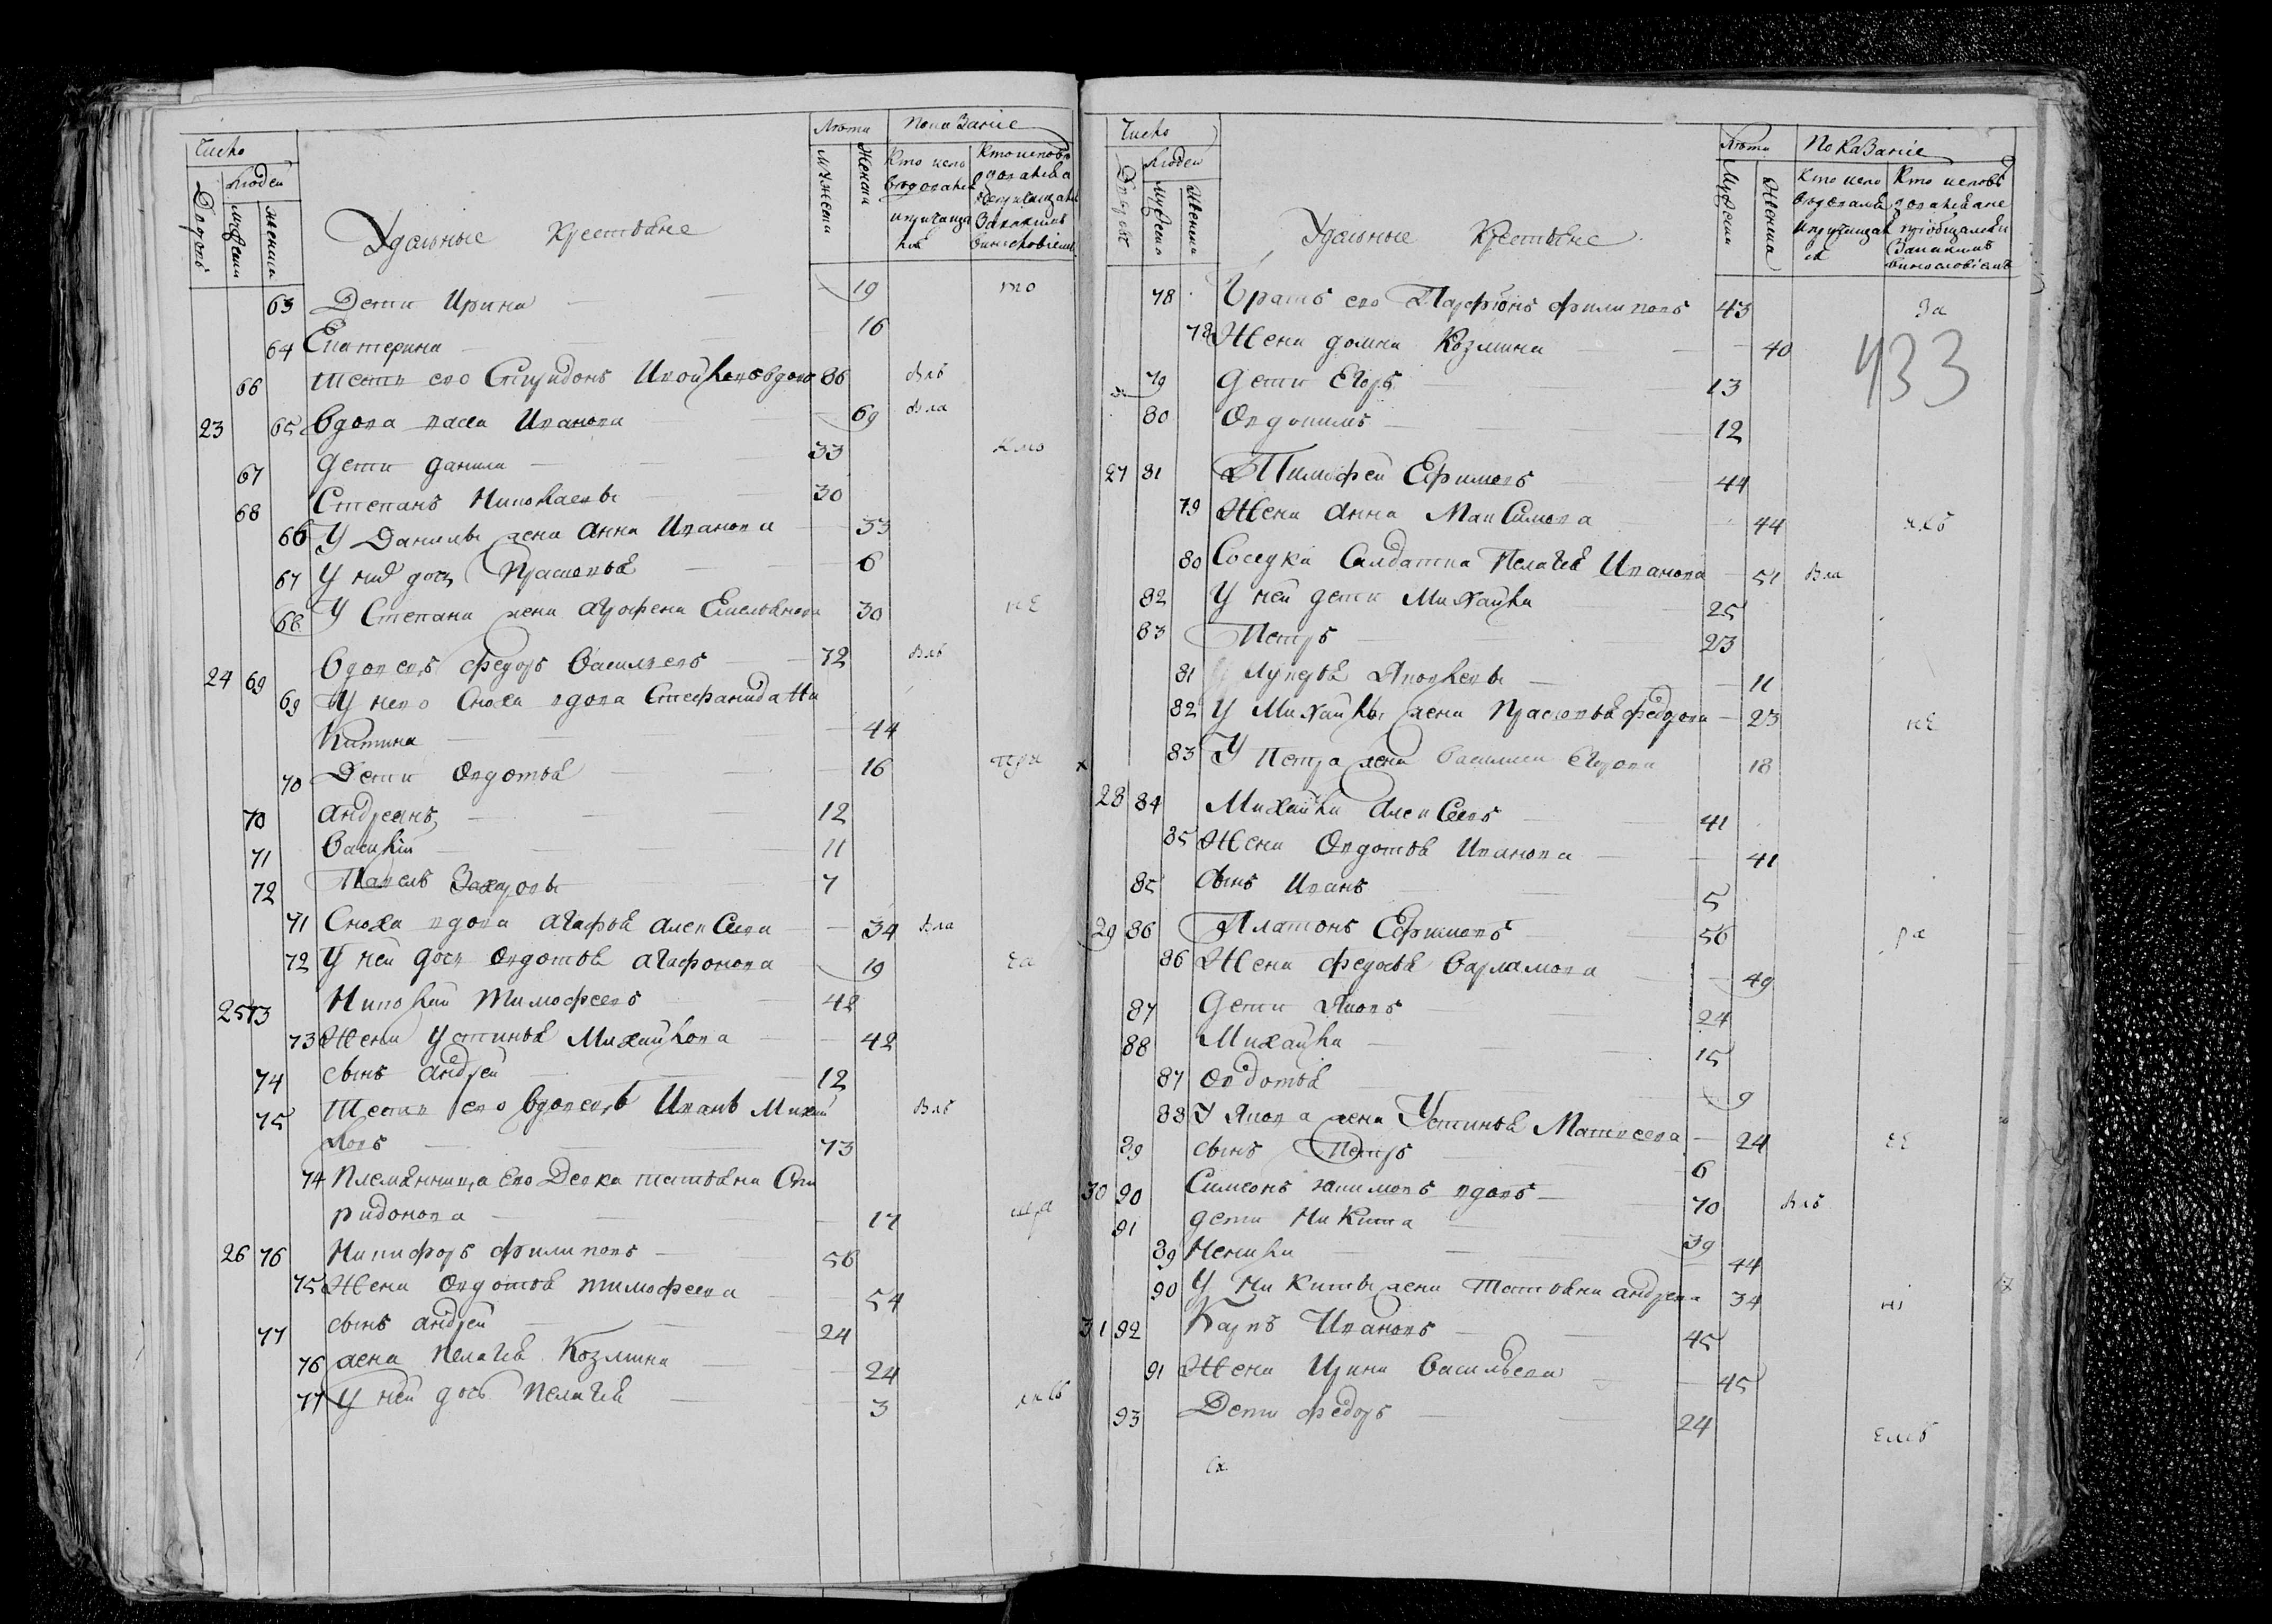 Число
Людей
Дворовъ
Мужеска
Женска
Удѣльные Крестьяне
Лѣта
Мужеска
Женска
Показание
63 Дети Ирина 19
64 Екатерина 16
66 тесть его Спиридонъ вдовъ 86
23 65 Вдова Иванова 69
67 дети данила 33
68 Степанъ Николаевы 30
66 У Данилы жена анна Иванова 33
67 У них дочь Прасковья 6
68 У Степана жена агрофена Емельянова 30
24 69 Вдовецъ федоръ Васильевъ 72
69 У него Сноха вдова Стефанида Ни
китина 44
70 Дети Овдотья 16
70 андреянъ 12
71 Василий 11
72 Павелъ Захаровы 7
71 Сноха вдова агафья алексеева 34
72 У ней дочь Овдотья агафонова 19
25 73 Николай тимофеевъ 42
73 Жена Устинья Михайлова 42
74 сынъ андрей 12
75 Тесть его Вдовецъ Иванъ Михай
ловъ 73
74 Племянница его Девка татьяна Спи
ридонова 17
26 76 Никифоръ филиповъ 56
75 Жена Овдотья тимофеева 54
77 сынъ андрей 24
76 жена Пелагея Козмина 24
77 У ней дочь Пелагея 3
Число
Людей
Дворовъ
Мужеска
Женска
Удѣльные Крестьяне
Лѣта
Мужеска
Женска
Показание
78 Братъ его Парфёнъ филиповъ 43
78 Жена домна Козмина 40
433
79 дети Егоръ 13
80 Овдокимъ 12
27 81 Тимофей Ефимовъ 44
79 Жена анна Максимова 44
80 Солдатка Пелагея Иванова 51
82 У ней дети Михайла 25
83 Петръ 23
81 Яковлевы 11
82 У Михайлы жена Прасковья федорова 23
83 У Петра жена Василиса Егорова 18
28 84 Михайла алексеевъ 41
85 Жена Овдотья Иванова 41
85 сынъ Иванъ 5
29 86 Платонъ Ефимовъ 56
86 Жена федосья Варламова 49
87 дети Яковъ 24
88 Михайла 15
87 Овдотья 9
88 У Якова жена Устинья Матвеева 24
89 сынъ Петръ 6
30 90 Симеонъ вдовъ 70
91 дети Никита 39
89 Ненила 44
90 У Никиты жена Татьяна андреева 34
31 92 Карпъ Ивановъ 45
91 Жена Ирина Васильева 45
93 Дети федоръ 24